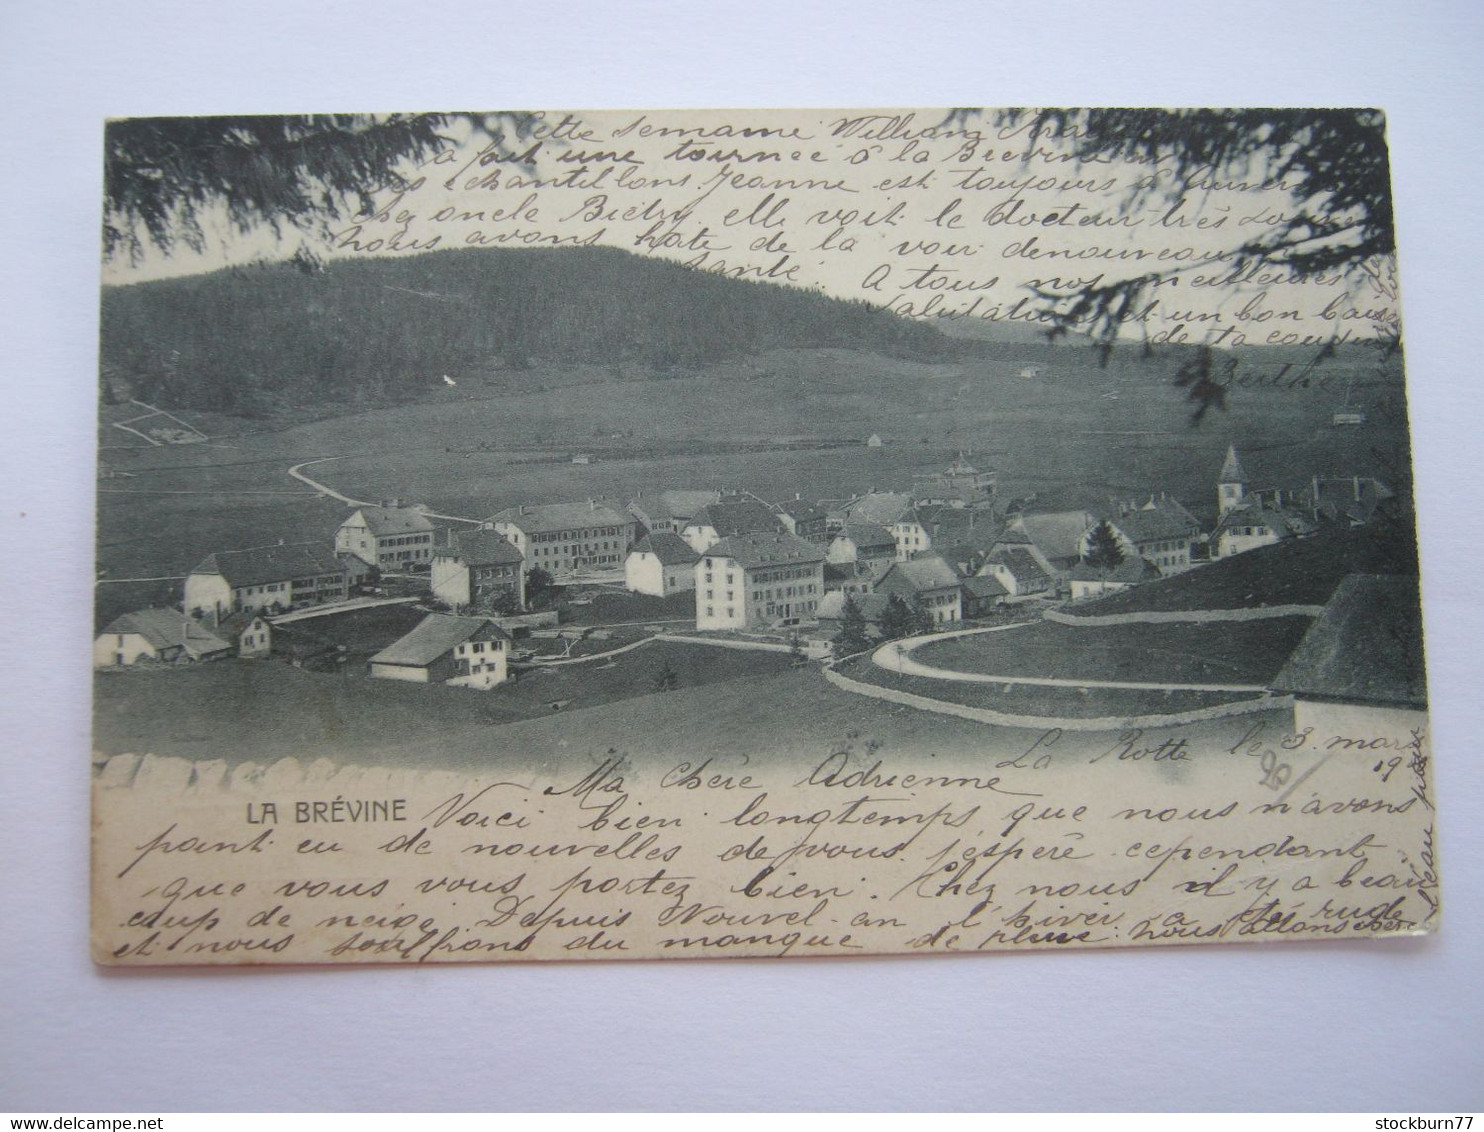 La Rotte le 3. mars
19
Ma Chère Adrienne
LA BRÉVINE
Voici bien longtemps que nous n'avons
point eu de nouvelles de vous. j'éspére cependant
que vous vous portez bien. Chez nous il y a beau
coup de neige. Depuis Nouvel-an l'hiver a été rude
et nous souffrons du manque de pluie: nous allons
l'eau pour
Cette semaine William
a fait une tournée à la Brévine
echantillons. Jeanne est toujours à
chez oncle Bichy. elle voit le docteur très
nous avons hâte de la voir denouveau
santé. A tous nos meilleures
salutations et un bon baiser
de ta cousine
Berthe
stockburn77